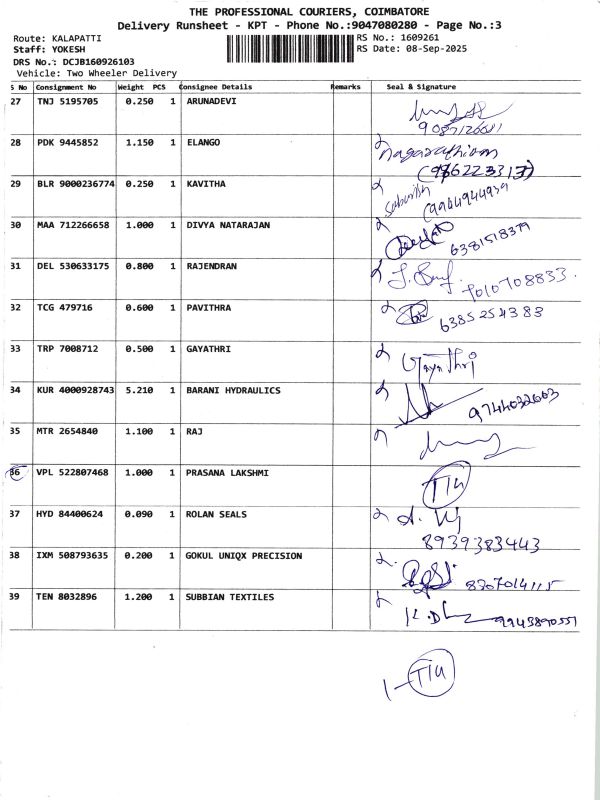 THE PROFESSIONAL COURIERS, COIMBATORE
Delivery Runsheet - KPT - Phone No.:9047080280 - Page No.:3
Route: KALAPATTI RS No.: 1609261
Staff: YOKESH RS Date: 08-Sep-2025
DRS No.: DCJB160926103
Vehicle: Two Wheeler Delivery
S No Consignment No Weight PCS Consignee Details Remarks Seal & Signature
27 TNJ 5195705 0.250 1 ARUNADEVI
28 PDK 9445852 1.150 1 ELANGO Nagarathinam
29 BLR 9000236774 0.250 1 KAVITHA
(9964944939
30 MAA 712266658 1.000 1 DIVYA NATARAJAN
6381518379
31 DEL 530633175 0.800 1 RAJENDRAN
7010708833.
32 TCG 479716 0.600 1 PAVITHRA
6385254383
33 TRP 7008712 0.500 1 GAYATHRI Gayathri
34 KUR 4000928743 5.210 1 BARANI HYDRAULICS
9744032663
35 MTR 2654840 1.100 1 RAJ
36 VPL 522807468 1.000 1 PRASANA LAKSHMI
37 HYD 84400624 0.090 1 ROLAN SEALS
8939383443
38 IXM 508793635 0.200 1 GOKUL UNIQX PRECISION
39 TEN 8032896 1.200 1 SUBBIAN TEXTILES
9943890551